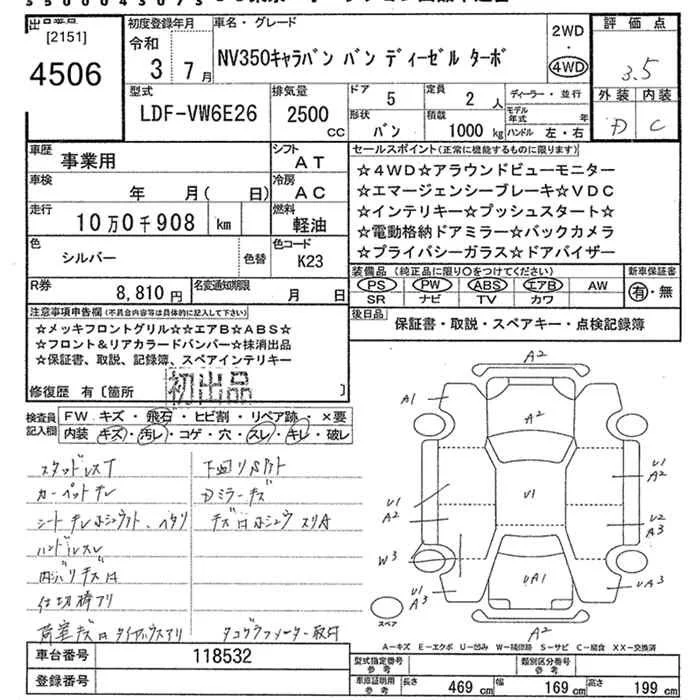 出品番号
[2151]
4506
初度登録年月
令和
3 7月
車名・グレード
NV350キャラバン バン ディーゼル ターボ
2WD
・
4WD
評価点
3.5
外装 内装
D C
型式
LDF-VW6E26
排気量
2500
CC
ドア 5
定員 2人
形状 バン
積載 1000kg
ディーラー・並行
モデル年式 年
ハンドル 左・右
車歴 事業用
シフト AT
車検 年 月( 日)
冷房 AC
走行 10万0千908 km
燃料 軽油
色 シルバー 色替
色コード K23
R券 8,810円
名変通知期限 月 日
セールスポイント(正常に機能するものに限ります)
☆4WD☆アラウンドビューモニター
☆エマージェンシーブレーキ☆VDC
☆インテリキー☆プッシュスタート☆
☆電動格納ドアミラー☆バックカメラ
☆プライバシーガラス☆ドアバイザー
装備品(純正品に限り○をつけてください)
PS PW ABS エアB AW
SR ナビ TV カワ
新車保証書
有・無
後日品 保証書・取説・スペアキー・点検記録簿
注意事項申告欄(不具合内容等は具体的に記入して下さい)
☆メッキフロントグリル☆☆エアB☆ABS☆
☆フロント&リアカラードバンパー☆抹消出品
☆保証書、取説、記録簿、スペアインテリキー
修復歴 有〔箇所 〕
初出品
検査員記入欄
FW キズ・飛石・ヒビ割・リペア跡・×要
内装 キズ・汚レ・コゲ・穴・スレ・キレ・破レ
スタッドレスT
カーペットキレ
ハンドルスレ
内張りキズ凹
仕切棒アリ
下回リサビ
Dミラーキズ
タコグラフメーター取付
A2
A1
A2
U1
A2
U1
U1
A2
U2
A3
W3
U1
A3
UA1
UA3
A2
スペア
A-キズ E-エクボ U-凹み W-補修跡 S-サビ C-腐食 XX-交換済
車台番号 118532
登録番号
型式指定番号 参考
類別区分番号 参考
車庫証明用 参考
長さ 469cm 幅 169cm 高さ 199cm